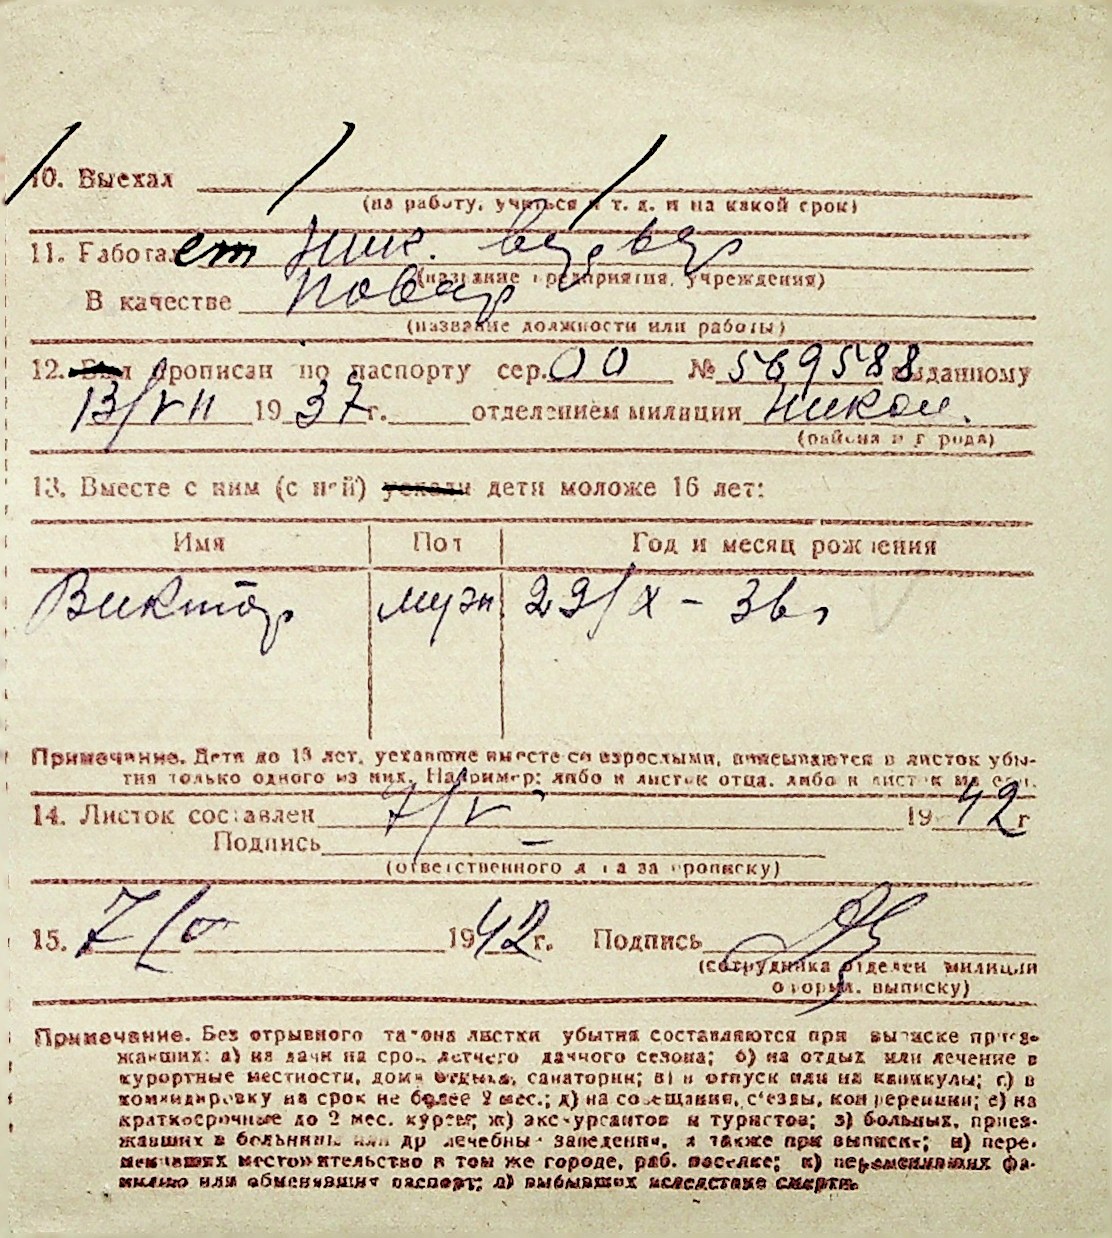 10. Выехал
(на работу, учиться и т. д. и на какой срок)
11. Работает Ник.
(название предприятия, учреждения)
В качестве повар
(название должности или работы)
12. Был прописан по паспорту сер. 00 № 569588 выданному
13/VII 1937г. отделением милиции Никол.
(района и города)
13. Вместе с ним (с ней) уехали дети моложе 16 лет:
Имя Пол Год и месяц рождения
Виктор муж 29/X - 36г
Примечание. Дети до 16 лет, уехавшие вместе со взрослыми, вписываются в листок убы-
тия только одного из них. Например: либо в листок отца, либо в листок матери.
14. Листок составлен 7/V - 1942г
Подпись
(ответственного лица за прописку)
15. 7/V 1942г. Подпись
(сотрудника отделен. милиции
оформ. выписку)
Примечание. Без отрывного талона листки убытия составляются при выписке приез-
жавших: а) на дачи на срок летнего дачного сезона; б) на отдых или лечение в
курортные местности, дома отдыха, санатории; в) в отпуск или на каникулы; г) в
командировку на срок не более 2 мес.; д) на совещания, съезды, конференции; е) на
краткосрочные до 2 мес. курсы; ж) экскурсантов и туристов; з) больных, приез-
жавших в больницы или др лечебные заведения, а также при выписке; и) пере-
менивших местожительство в том же городе, раб. поселке; к) переменивших фа-
милию или обменявших паспорт; л) выбывших вследствие смерти.